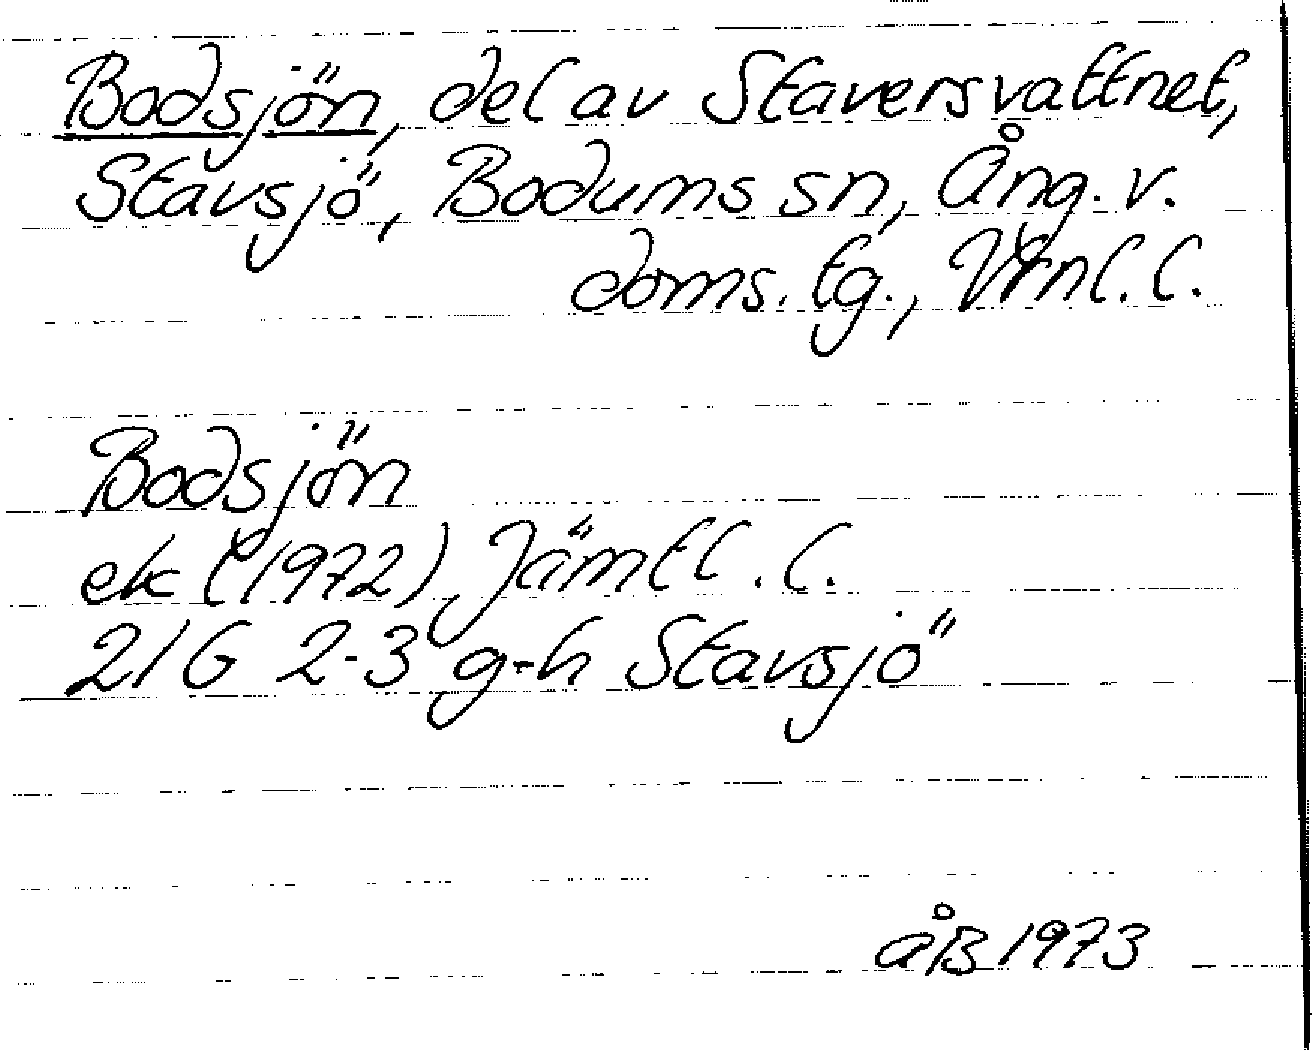 Bodsjön, del av Staversvattnet,
Stavsjö, Bodums sn, Ång. v.
doms. tg., Vrnl. l.
Bodsjön
ek (1972), Jämtl. l.
21G 2-3 g-h Stavsjö
åB 1973